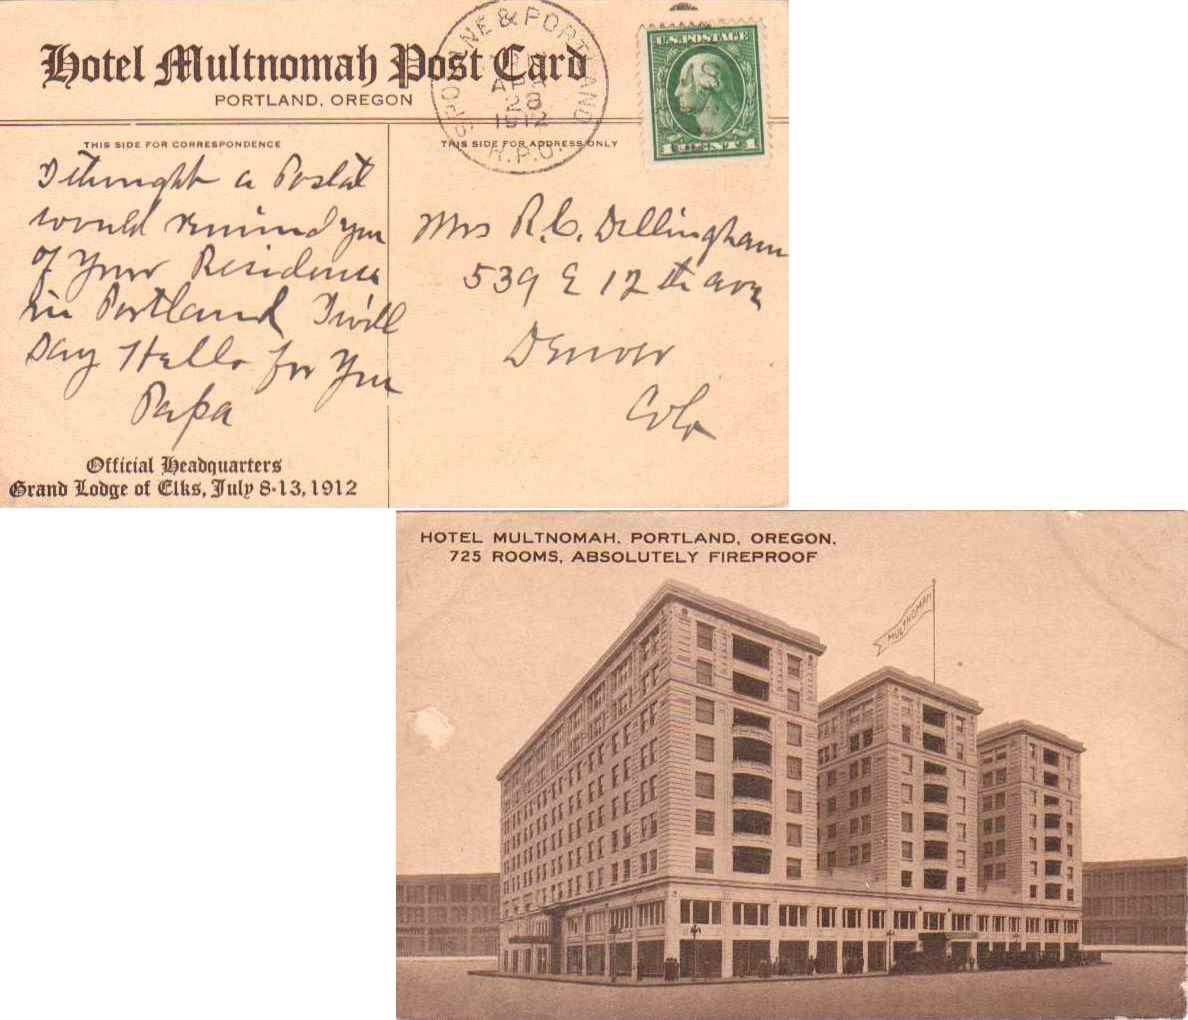 Hotel Multnomah Post Card
PORTLAND, OREGON
SPOKANE & PORTLAND
APR
28
1912
R.P.O.
U.S. POSTAGE
1 CENT 1
THIS SIDE FOR CORRESPONDENCE
THIS SIDE FOR ADDRESS ONLY
I thought a Postal
would remind you
of your Residence
in Portland I will
Say Hello for you
Papa
Mrs R.C. Dillingham
539 E 12th ave
Denver
Colo
Official Headquarters
Grand Lodge of Elks, July 8-13, 1912
HOTEL MULTNOMAH. PORTLAND, OREGON,
725 ROOMS, ABSOLUTELY FIREPROOF
MULTNOMAH